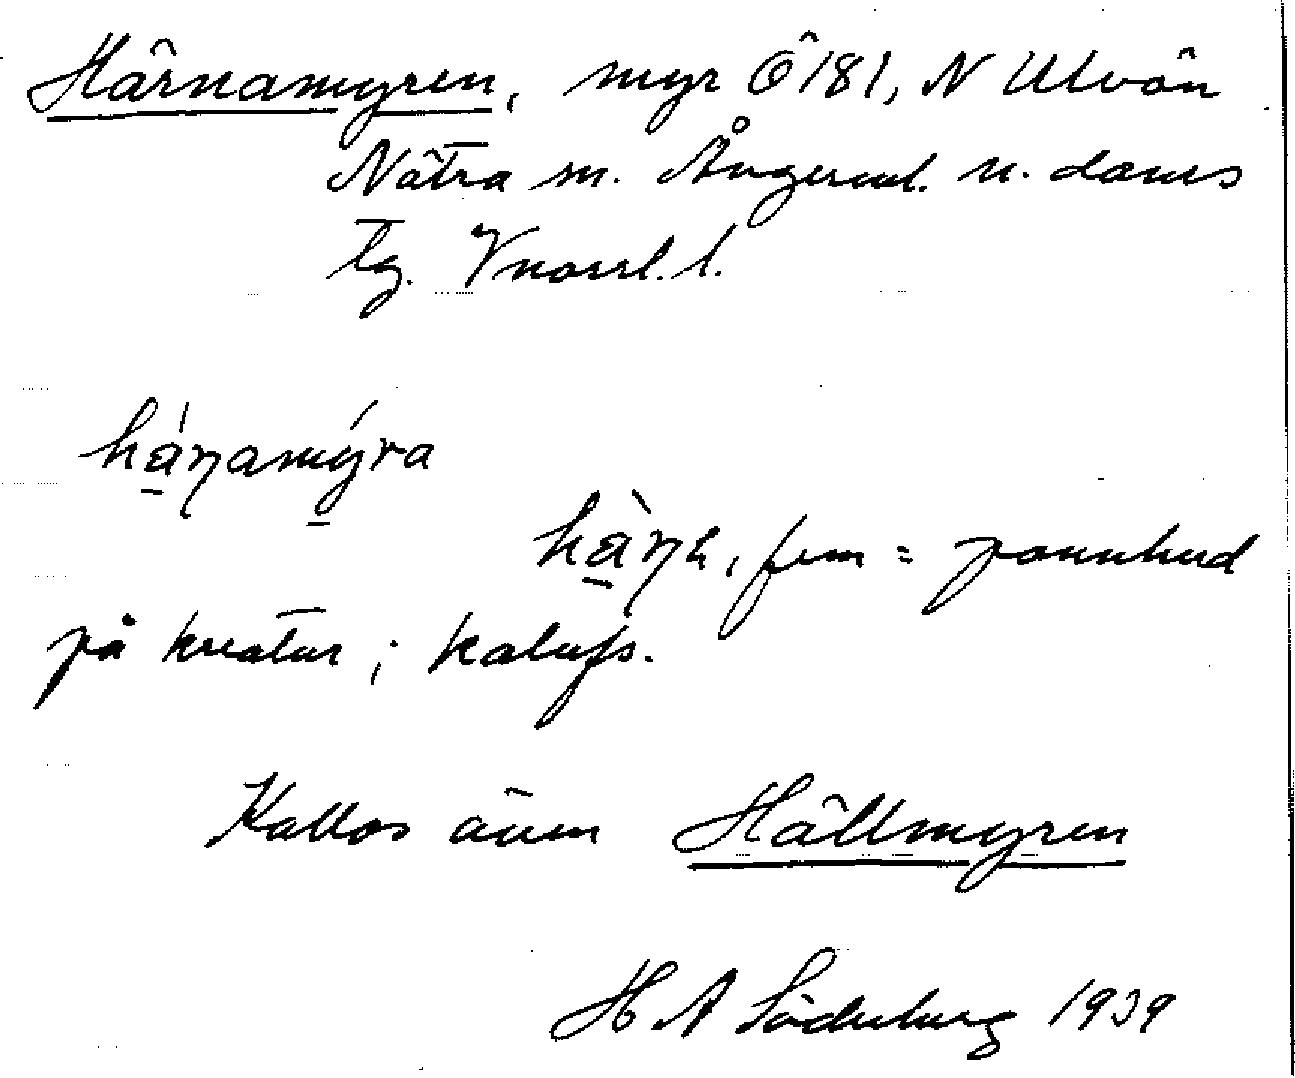 Härnamyren, myr Ö 181, N Ulvön
Nätra sn. Ångerml. n. doms
tg. Vnorrl. l.
hánamýra
hàna, fem = pannhud
på kreatur; kalufs.
Kallas även Hällmyren
H A Söderberg 1939